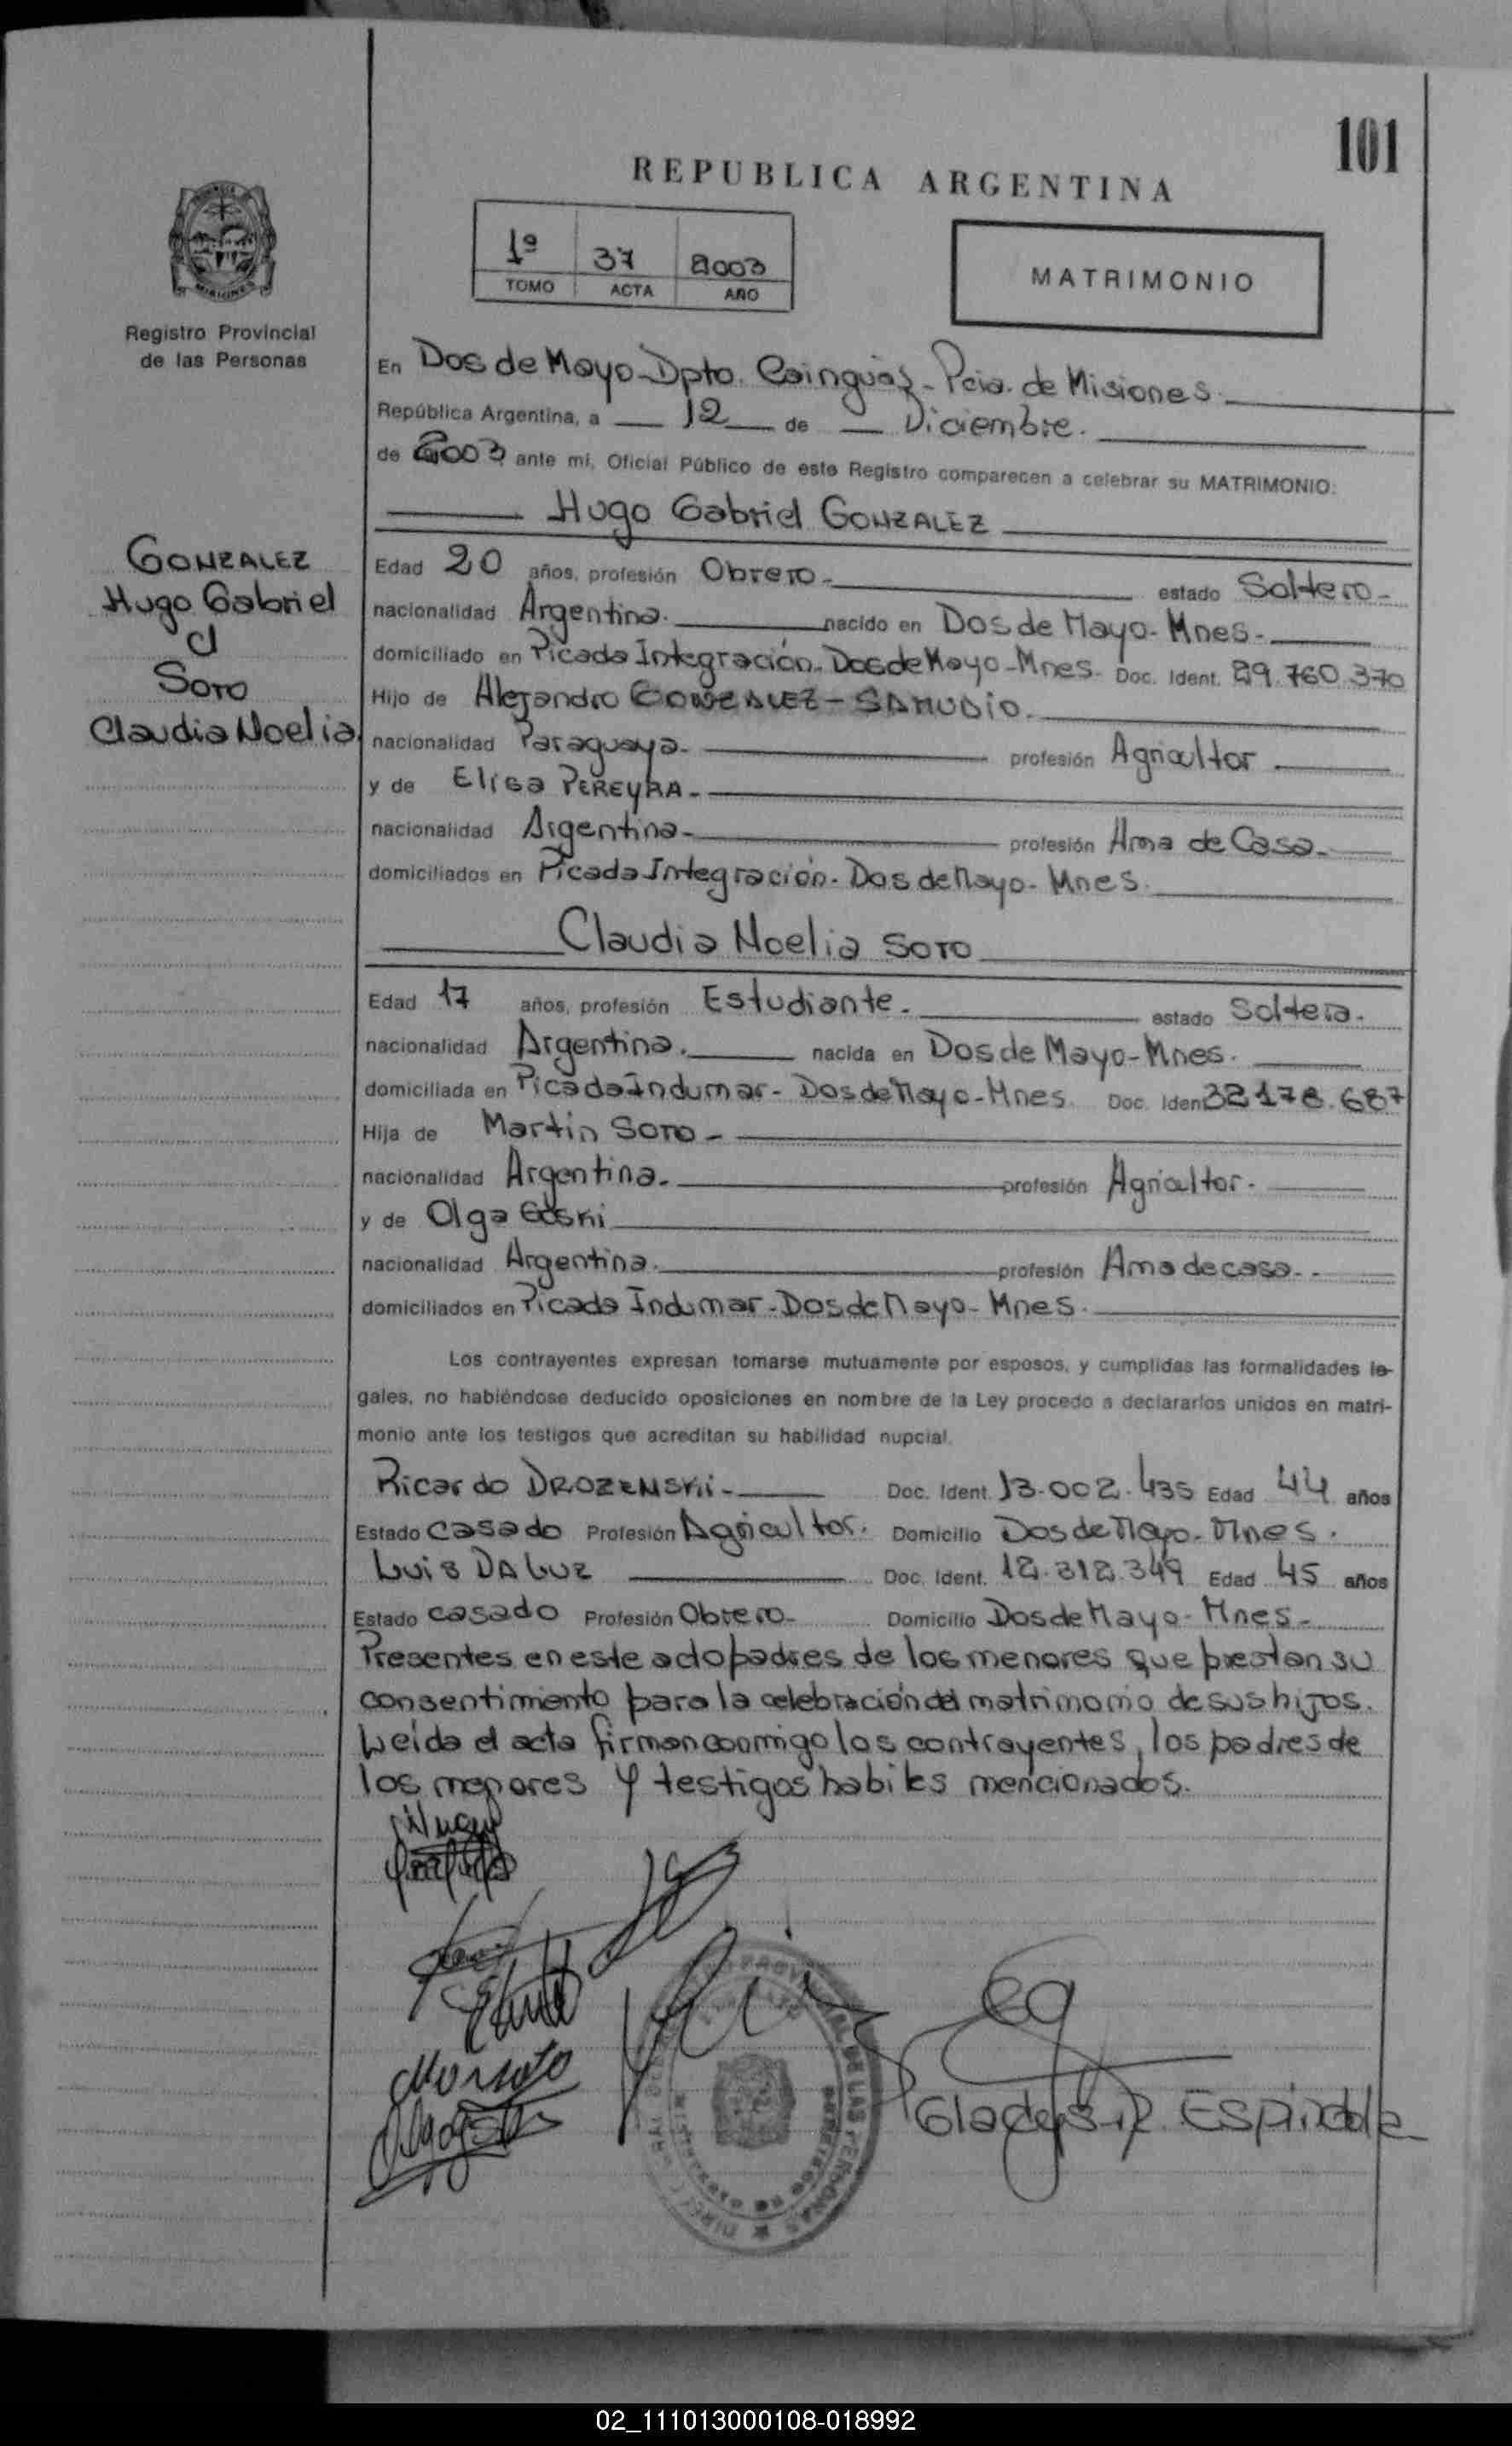 101
REPUBLICA ARGENTINA
1º 37 2003
TOMO ACTA AÑO
MATRIMONIO
MISIONES
Registro Provincial
de las Personas
En Dos de Mayo-Dpto. Cainguás-Pcia. de Misiones.
República Argentina, a 12 de Diciembre.
de 2003 ante mí, Oficial Público de este Registro comparecen a celebrar su MATRIMONIO:
Hugo Gabriel GONZALEZ
GONZALEZ
Hugo Gabriel
c/
SOTO
Claudia Noelia
Edad 20 años, profesión Obrero- estado Soltero-
nacionalidad Argentina. nacido en Dos de Mayo-Mnes-
domiciliado en Picada Integración-Dos de Mayo-Mnes- Doc. Ident. 29.760.370
Hijo de Alejandro GONZALEZ-SAMUDIO.
nacionalidad Paraguaya- profesión Agricultor
y de Elisa PEREYRA-
nacionalidad Argentina- profesión Ama de Casa-
domiciliados en Picada Integración-Dos de Mayo-Mnes.
Claudia Noelia SOTO
Edad 17 años, profesión Estudiante- estado Soltera.
nacionalidad Argentina. nacida en Dos de Mayo-Mnes.
domiciliada en Picada Indumar-Dos de Mayo-Mnes. Doc. Iden 32.178.687
Hija de Martin SOTO-
nacionalidad Argentina. profesión Agricultor.
y de Olga
nacionalidad Argentina. profesión Ama de casa-
domiciliados en Picada Indumar-Dos de Mayo-Mnes.
Los contrayentes expresan tomarse mutuamente por esposos, y cumplidas las formalidades le-
gales, no habiéndose deducido oposiciones en nombre de la Ley procedo a declararlos unidos en matri-
monio ante los testigos que acreditan su habilidad nupcial.
Ricardo DROZENSKii- Doc. Ident. 13.002.435 Edad 44 años
Estado casado Profesión Agricultor. Domicilio Dos de Mayo-Mnes.
Luis DA LUZ Doc. Ident. 12.312.349 Edad 45 años
Estado casado Profesión Obrero- Domicilio Dos de Mayo-Mnes-
Presentes en este acto padres de los menores que prestan su
consentimiento para la celebración del matrimonio de sus hijos.
Leída el acta firman conmigo los contrayentes, los padres de
los menores y testigos habiles mencionados.
Gladys R. Espindola
02_111013000108-018992